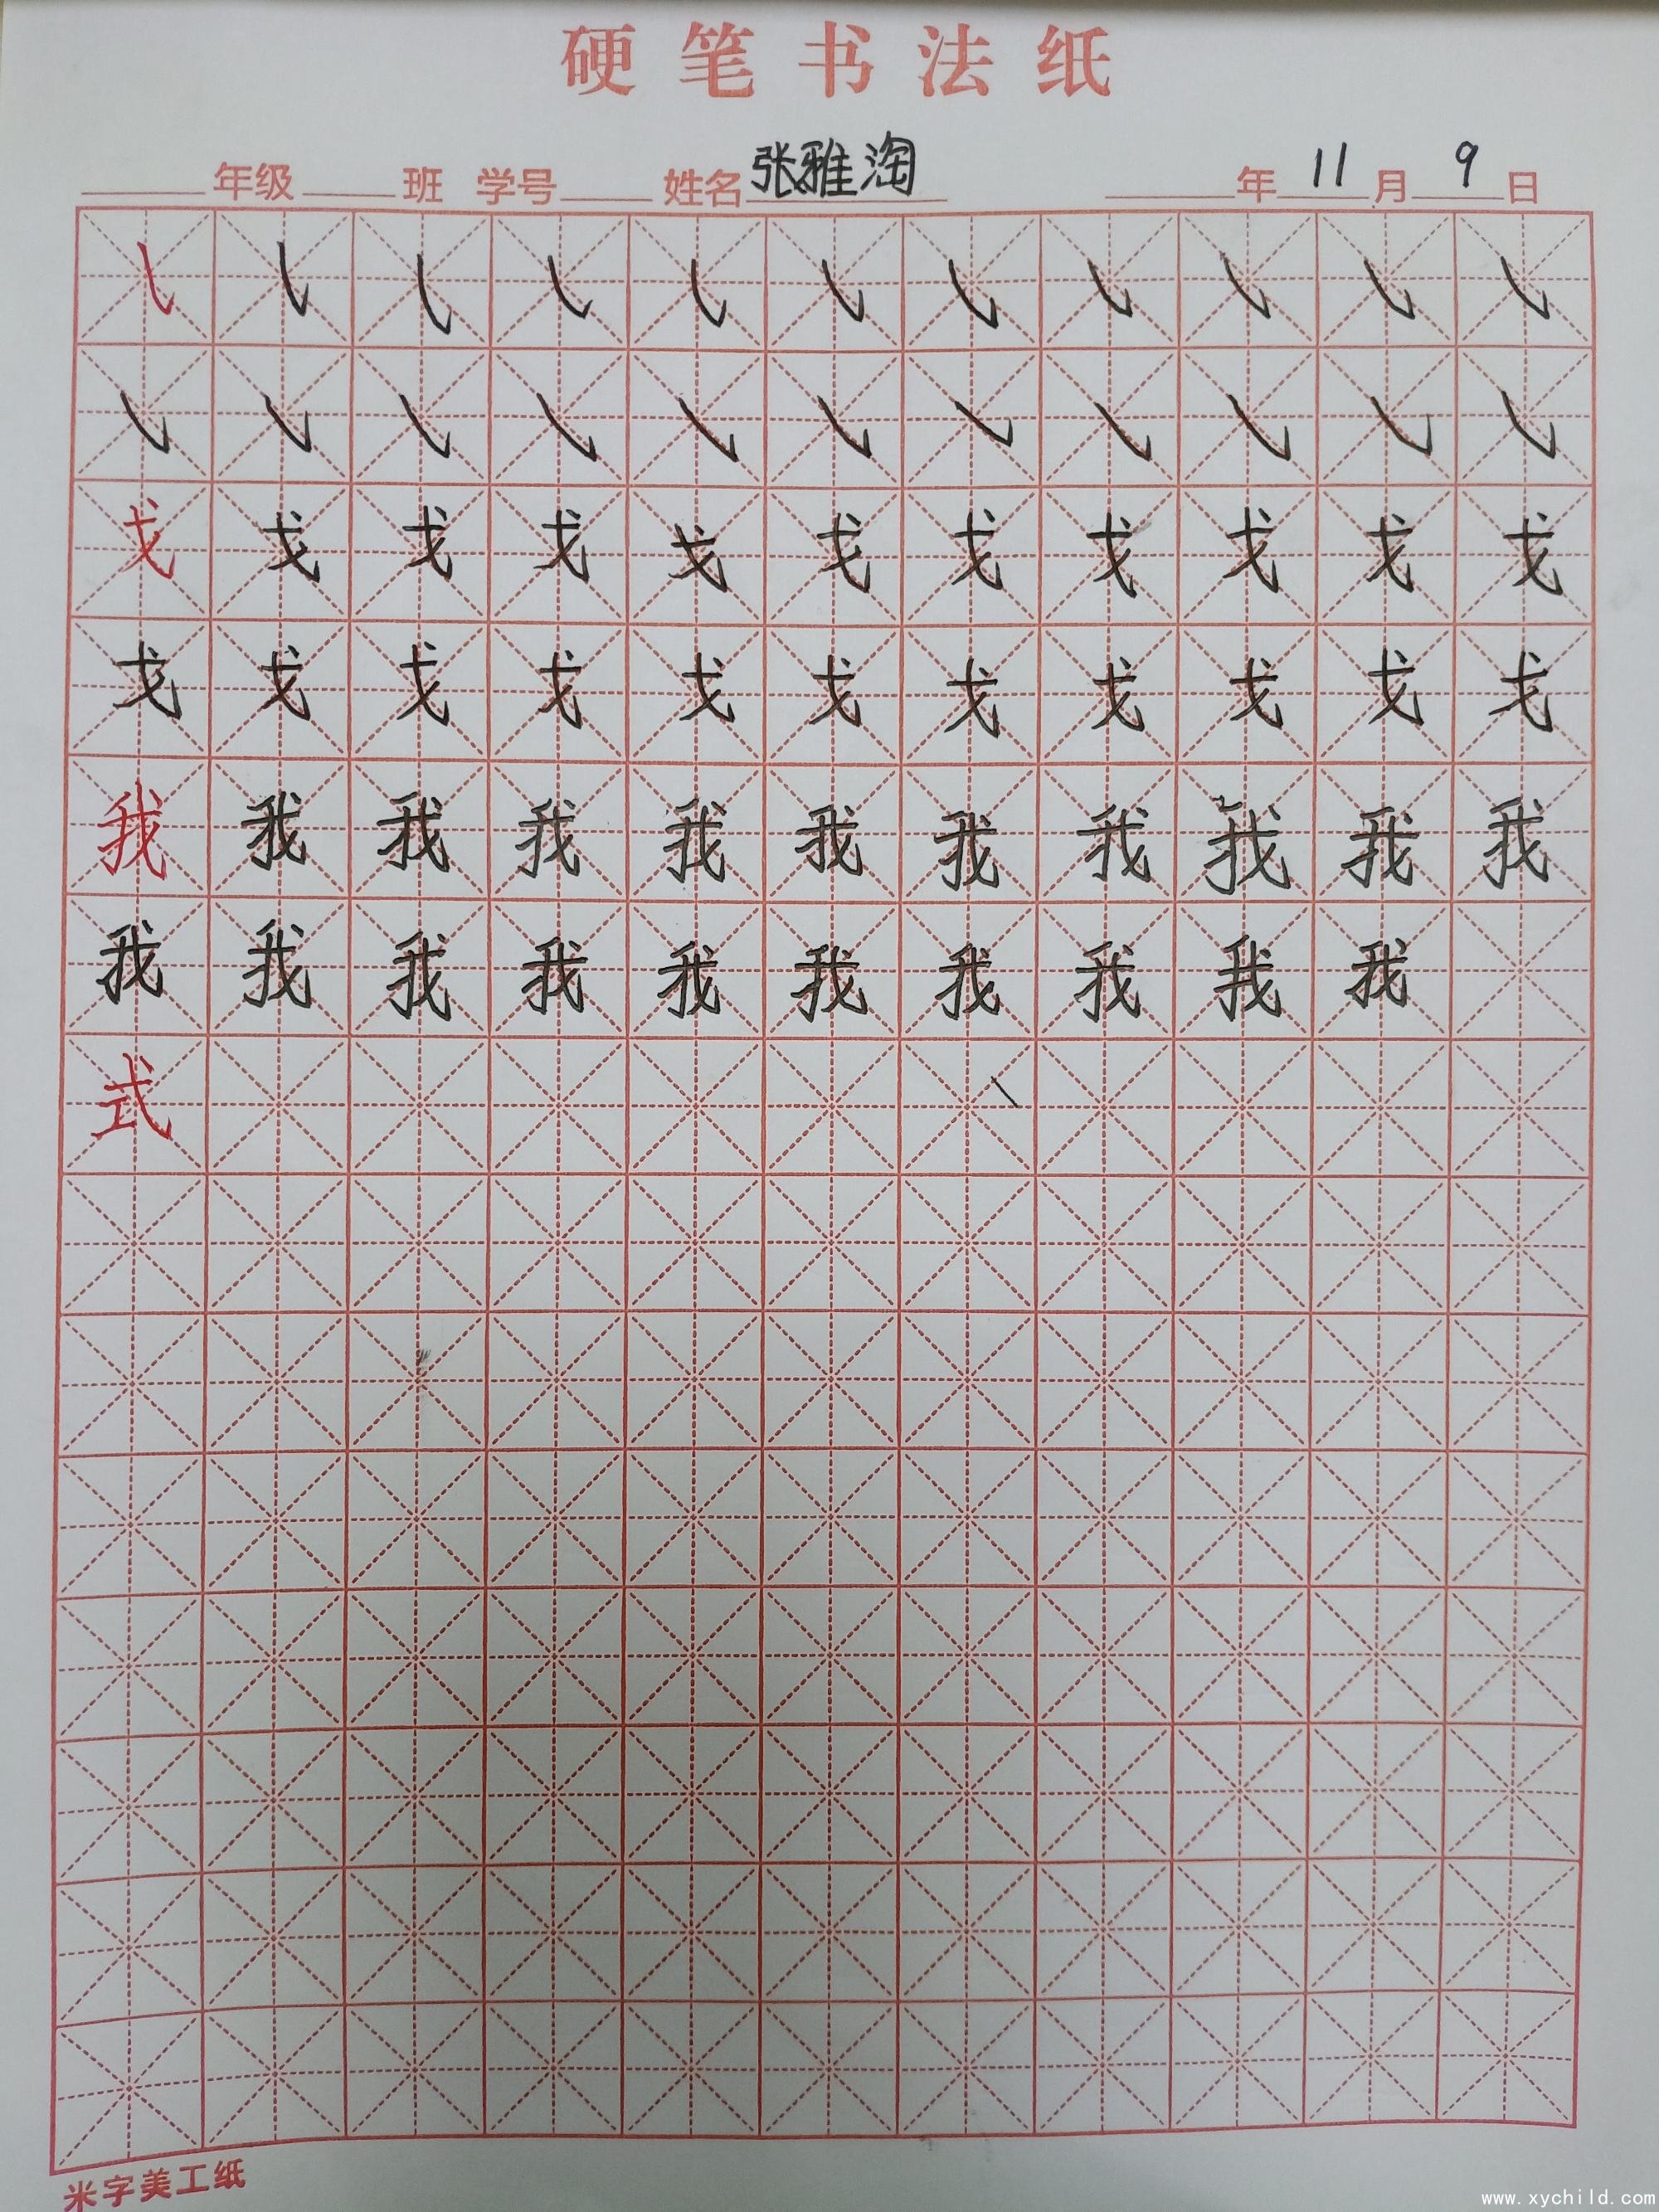 硬笔书法纸
年级 班 学号 姓名张雅淘 年11月9日
㇂㇂㇂㇂㇂㇂㇂㇂㇂㇂㇂
㇂㇂㇂㇂㇂㇂㇂㇂㇂㇂㇂
戈戈戈戈戈戈戈戈戈戈戈
戈戈戈戈戈戈戈戈戈戈戈
我我我我我我我我我我我
我我我我我我我我我我
式
米字美工纸
www.xychild.com